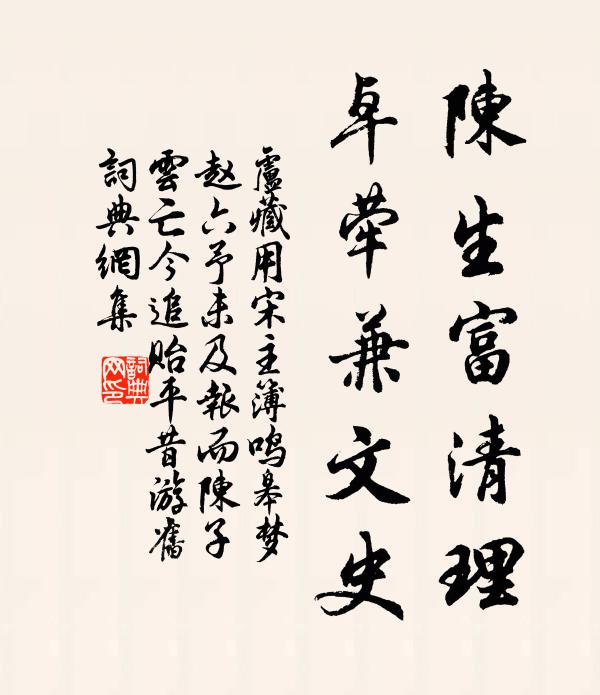 陳生富清理
卓荦兼文史
盧藏用宋主簿鸣皋梦
赵六予未及報而陳子
雲亡今追貽平昔游舊
詞典網集
詞典
网印